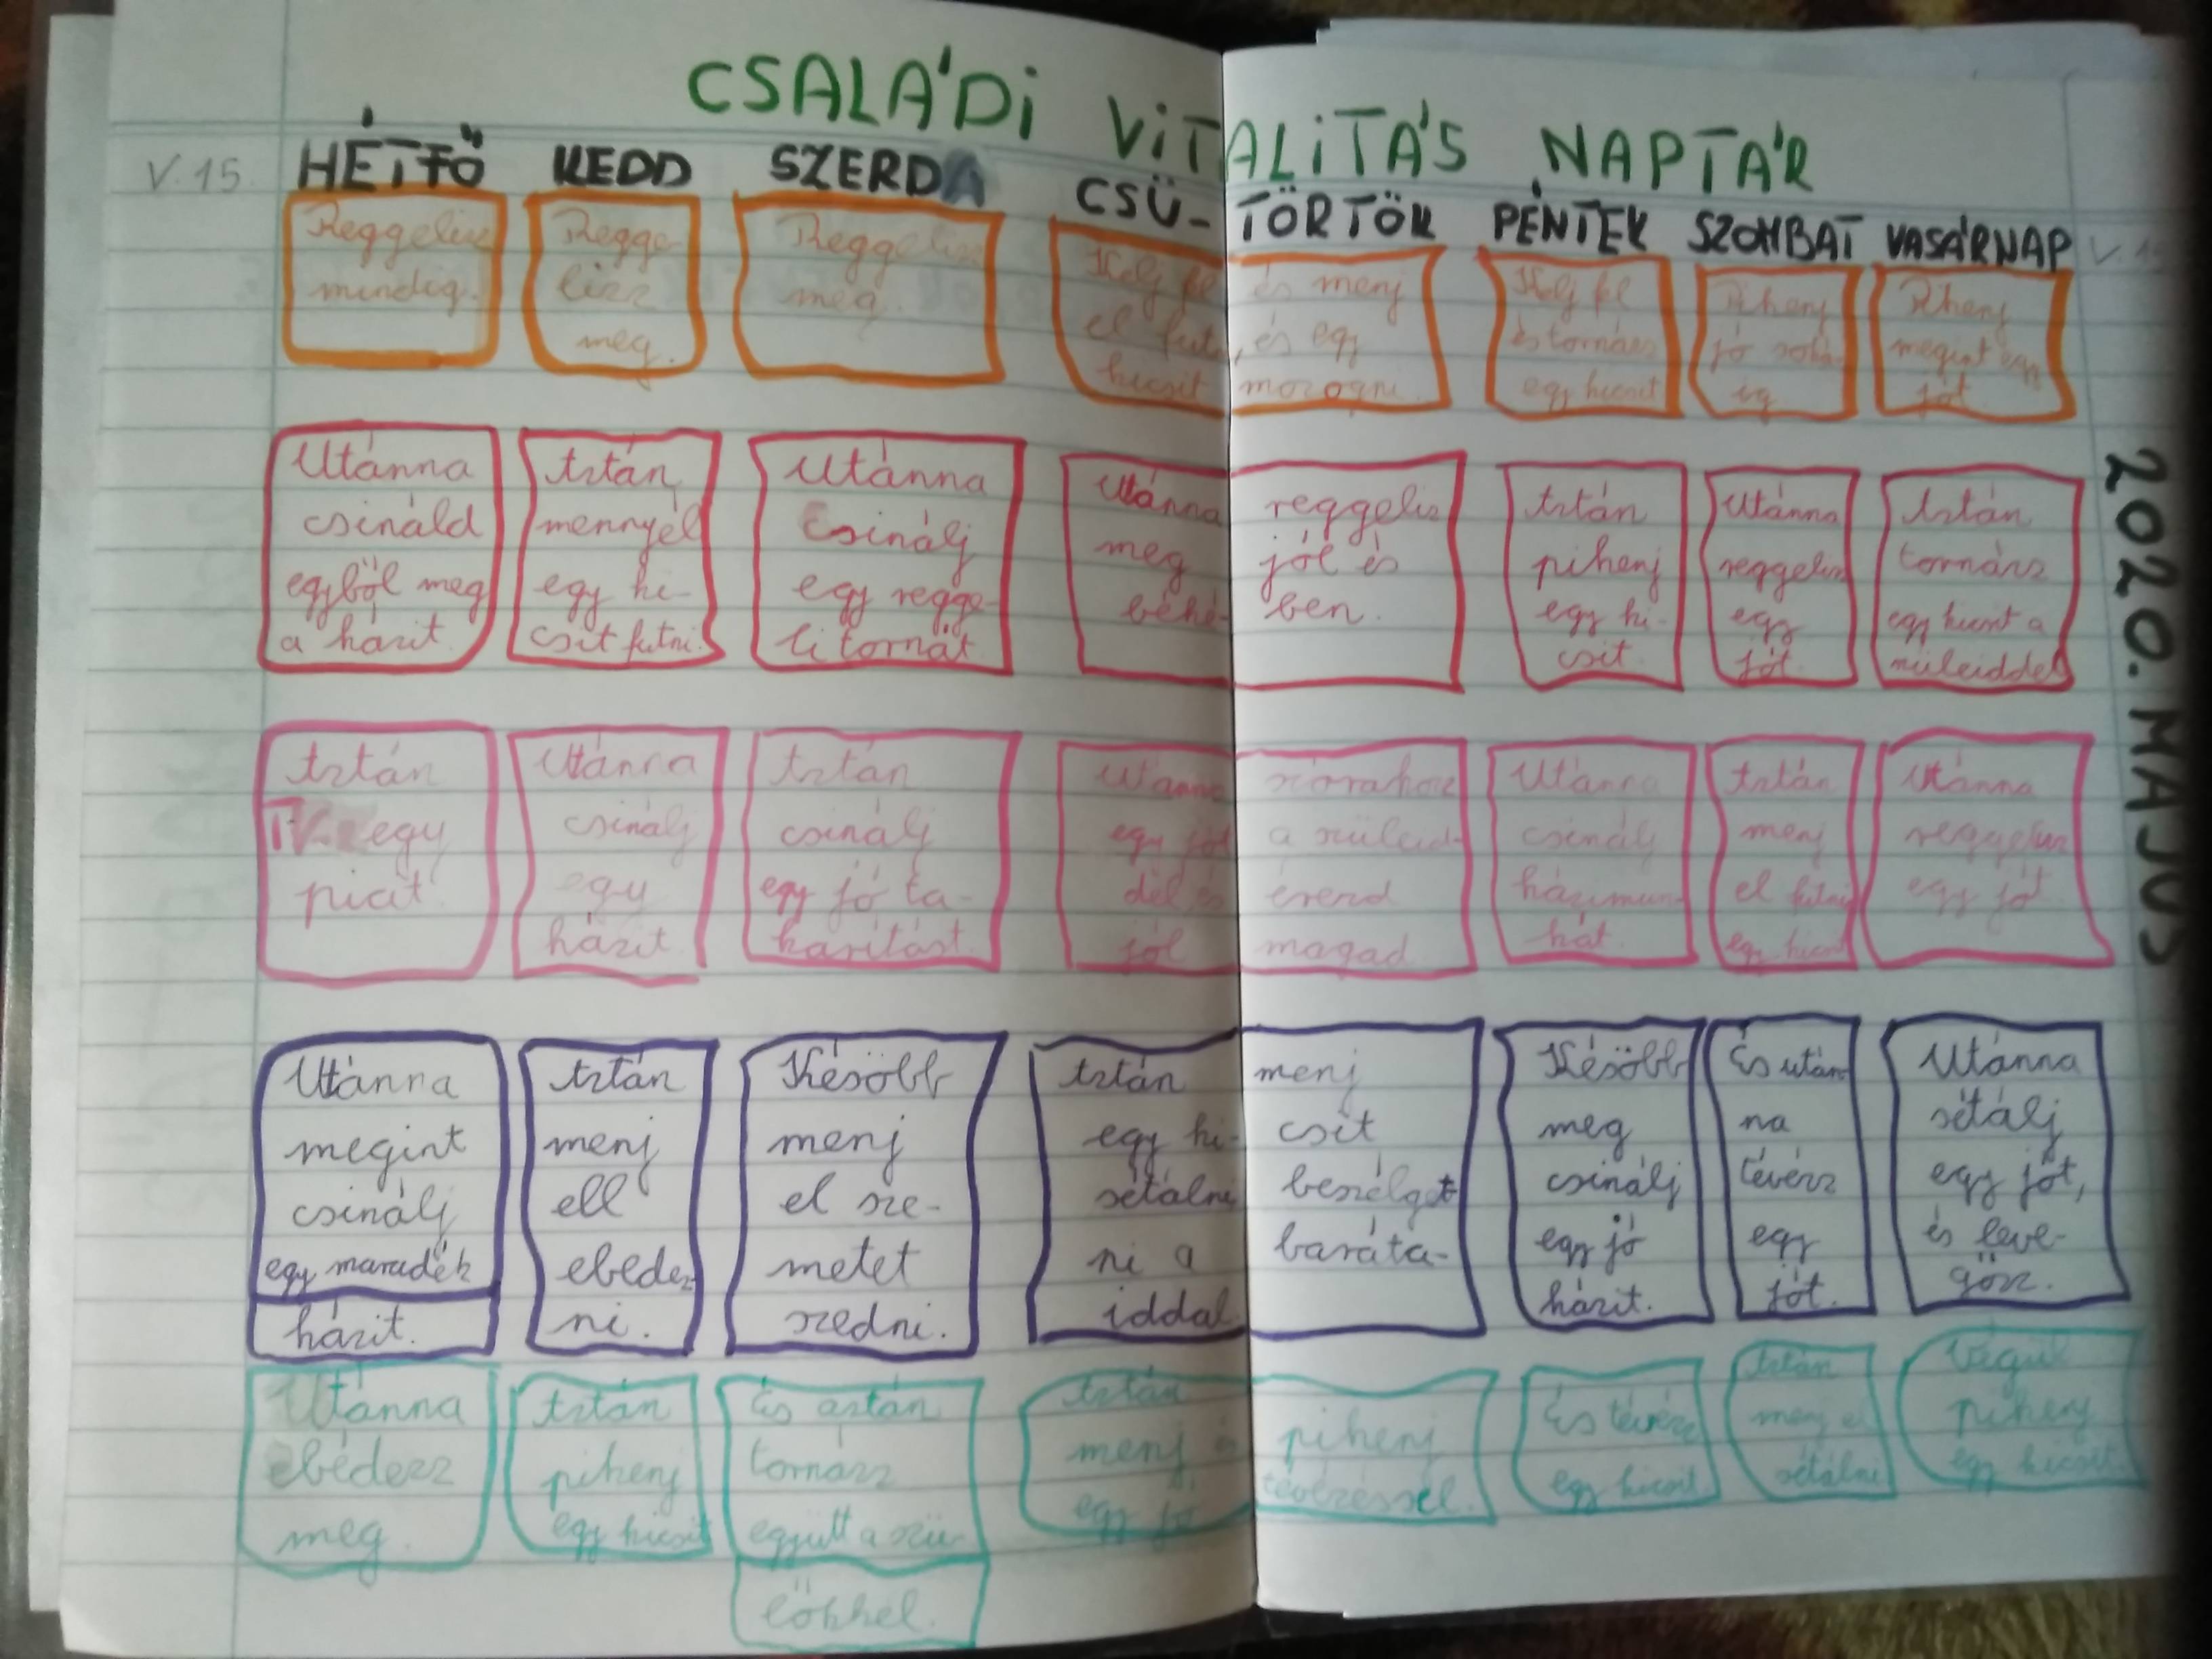 CSALÁDI VITALITÁS NAPTÁR
V. 15.
HÉTFŐ KEDD SZERDA CSÜ-TÖRTÖK PÉNTEK SZOMBAT VASÁRNAP
V. 15
2020. MÁJUS
Reggelizz
mindig.
Regge
lizz
meg.
Reggelizz
meg.
Kelj fel és menj
el futni, és egy
kicsit mozogni.
Kelj fel
és tornázz
egy kicsit
Pihenj
jó soká
ig
Pihenj
megint egy
jót
Utánna
csináld
egyből meg
a házit.
Aztán
mennyél
egy ki-
csit futni.
Utánna
csinálj
egy regge-
li tornát
Utánna reggeliz
meg jól és
béké- ben.
Aztán
pihenj
egy ki-
csit.
Utánna
reggeliz
egy
jót.
Aztán
tornázz
egy kicsit a
szüleiddel
Aztán
TV egy
picit.
Utánna
csinálj
egy
házit
Aztán
csinálj
egy jó ta-
karítást.
Utánna szórakozz
egy jót a szüleid-
del, és érezd
jól magad
Utánna
csinálj
házimun-
kát.
Aztán
menj
el futni
egy kicsit
Utánna
reggelizz
egy jót
Utánna
megint
csinálj
egy maradék
házit.
Aztán
menj
ell
ebédez
ni.
Később
menj
el sze-
metet
szedni.
Aztán menj
egy ki- csit
sétálni, beszélget
ni a baráta-
iddal
Később
meg
csinálj
egy jó
házit.
És után
na
tévézz
egy
jót.
Utánna
sétálj
egy jót,
és leve-
gőzz.
Utánna
ebédezz
meg.
Aztán
pihenj
egy kicsit
És aztán
tornázz
együtt a szü-
lőkkel.
Aztán
menj és pihenj
egy jó tévézéssel.
És tévézz
egy kicsit.
Aztán
menj el
sétálni
Végül
pihenj
egy kicsit.